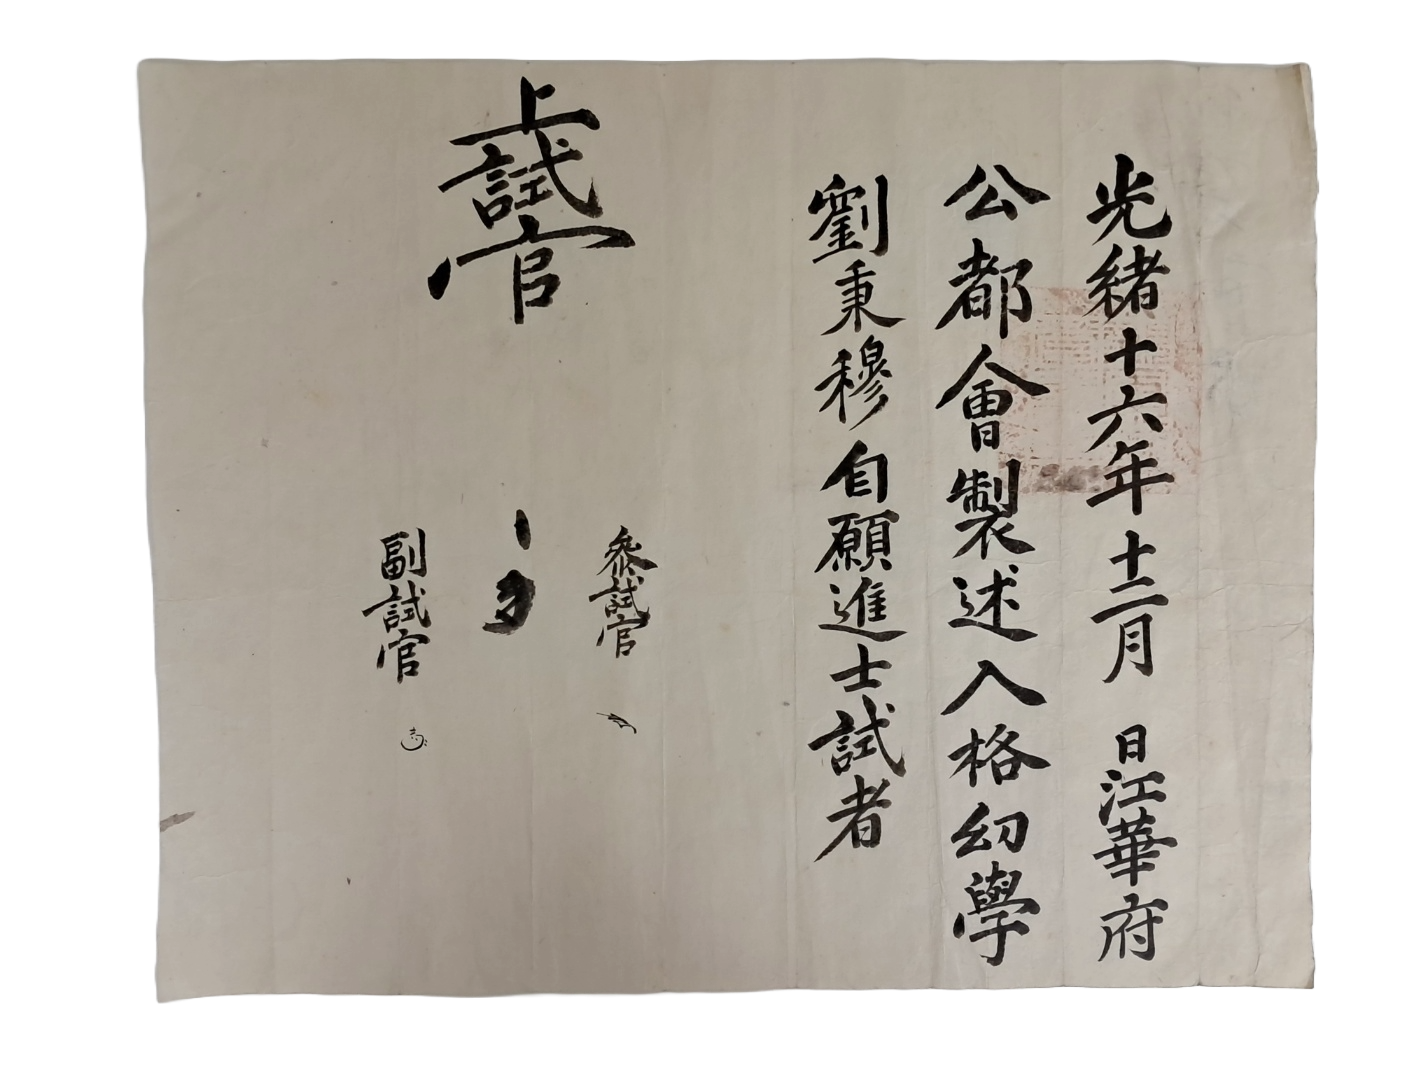 光緒十六年十二月 日江華府
公都會製述入格幼學
劉秉穆自願進士試者
上試官
參試官
副試官